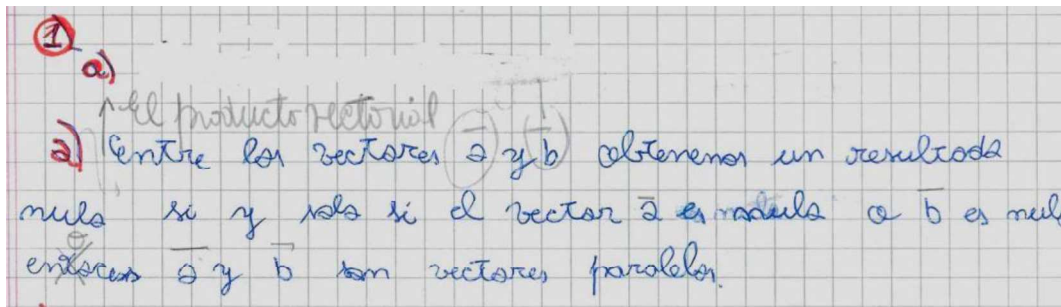 1
a)
El producto vectorial
a) Entre los vectores a y b obtenemos un resultado
nulo si y solo si el vector a es o b es nul
o
entonces a y b son vectores paralelos.